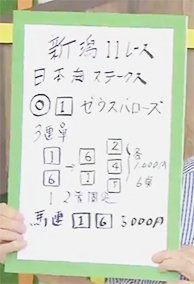 新潟11レース
日本海ステークス
◎ 1 ゼウスバローズ
3連単
1 6 2
4
6 1 1
各1,000円
6点
1 2着固定
馬連 1 6 5000円